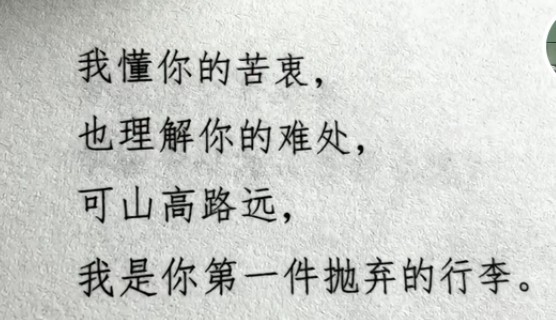 我懂你的苦衷，
也理解你的难处，
可山高路远，
我是你第一件抛弃的行李。